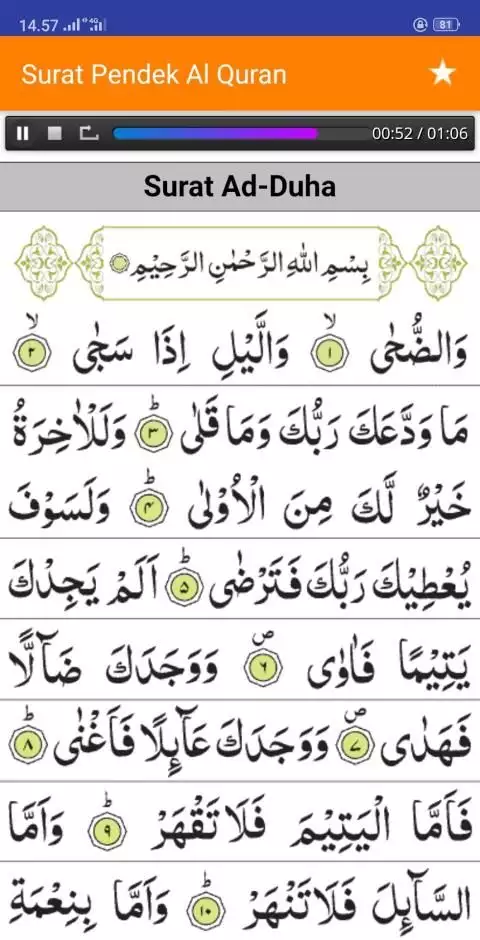 14.57 4G 81
Surat Pendek Al Quran
00:52 / 01:06
Surat Ad-Duha
بِسْمِ اللهِ الرَّحْمٰنِ الرَّحِيْمِ
وَالضُّحٰى ۙ ١ وَالَّيْلِ اِذَا سَجٰى ۙ ٢
مَا وَدَّعَكَ رَبُّكَ وَمَا قَلٰى ۗ ٣ وَلَلْاٰخِرَةُ
خَيْرٌ لَّكَ مِنَ الْاُوْلٰى ۗ ٤ وَلَسَوْفَ
يُعْطِيْكَ رَبُّكَ فَتَرْضٰى ۗ ٥ اَلَمْ يَجِدْكَ
يَتِيْمًا فَاٰوٰى ۖ ٦ وَوَجَدَكَ ضَاۤلًّا
فَهَدٰى ۖ ٧ وَوَجَدَكَ عَاۤىِٕلًا فَاَغْنٰى ۗ ٨
فَاَمَّا الْيَتِيْمَ فَلَا تَقْهَرْ ۗ ٩ وَاَمَّا
السَّاۤىِٕلَ فَلَا تَنْهَرْ ۗ ١٠ وَاَمَّا بِنِعْمَةِ